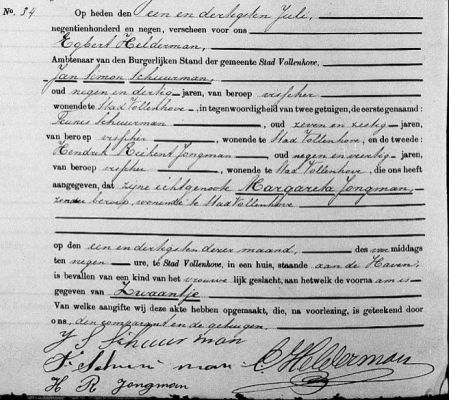 No. 34 Op heden den een en dertigsten Juli,
negentienhonderd en negen, verscheen voor ons
Egbert Helderman,
Ambtenaar van den Burgerlijken Stand der gemeente Stad Vollenhove,
Jan Simon Schuurman,
oud negen en dertig jaren, van beroep visscher
wonende te Stad Vollenhove, in tegenwoordigheid van twee getuigen, de eerste genaamd:
Teunis Schuurman, oud zeven en zestig jaren,
van beroep visscher, wonende te Stad Vollenhove, en de tweede:
Hendrik Reikent Jongman oud negen en veertig jaren,
van beroep visscher, wonende te Stad Vollenhove, die ons heeft
aangegeven, dat zijne echtgenoote Margareta Jongman,
zonder beroep, wonende te Stad Vollenhove
op den een en dertigsten dezer maand, des voormiddags
ten negen ure, te Stad Vollenhove, in een huis, staande aan de Haven,
is bevallen van een kind van het vrouwelijk geslacht, aan hetwelk de voornaam is
gegeven van Zwaantje
Van welke aangifte wij deze akte hebben opgemaakt, die, na voorlezing, is geteekend door
ons, den comparant en de getuigen.
J S Schuurman
T. Schuurman E Helderman
H R Jongman